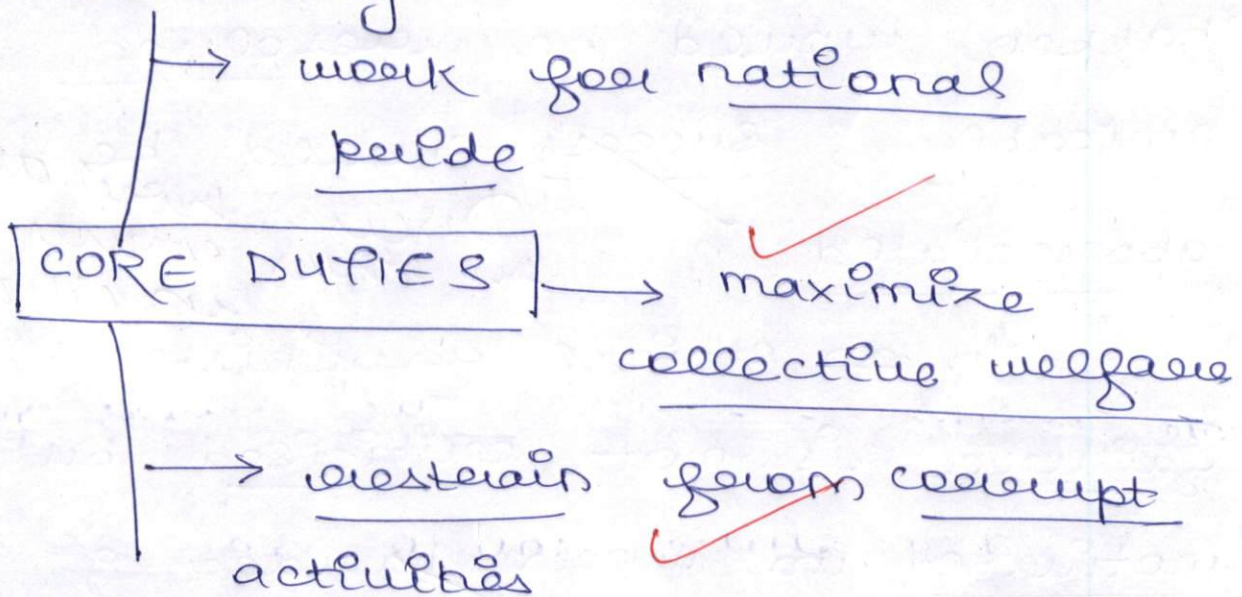 work for national
pride
CORE DUTIES
maximize
collective welfare
restrain from corrupt
activities